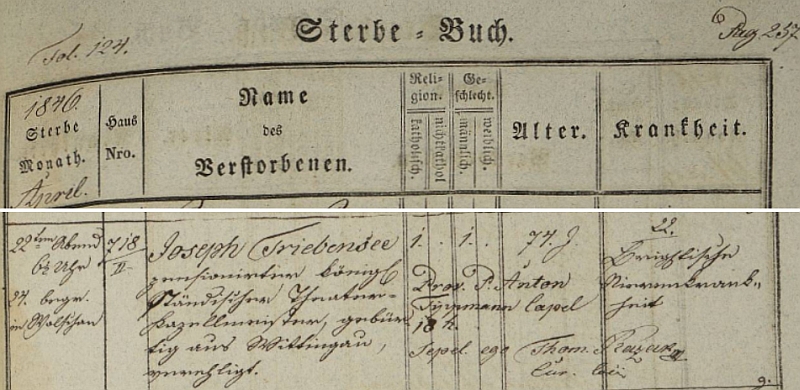 Fol. 124.
Sterbe-Buch.
Pag 257
1846.
Sterbe
Monath.
April.
Haus
Nro.
Name
des
Verstorbenen.
Reli-
gion.
katholisch.
nichtkathol
Ge-
schlecht.
männlich.
weiblich.
Alter.
Krankheit.
22ten Abend
6½ Uhr
24. begr.
in Wolschan
718
II
Joseph Triebensee
pensionirter königl
ständischer Theater-
Kapellmeister, gebür
tig aus Wittingau,
verehligt.
1. 1. 74. J.
Prov. P. Anton
Tippmann Capel
18 h.
Sepel. ego Thom.
22.
Brightische
Nierenkrank-
heit
9.